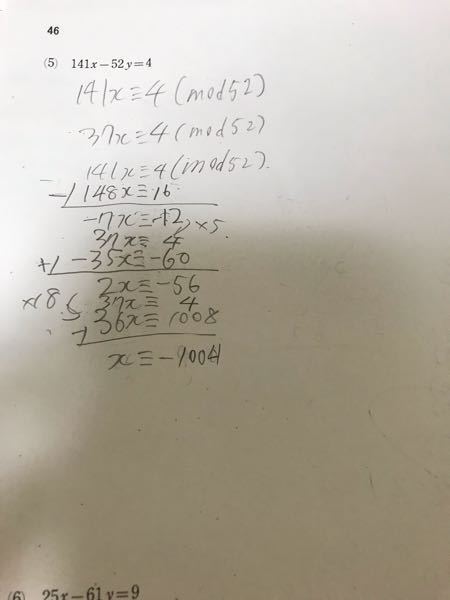 46
(5) 141x−52y=4
141x≡4 (mod52)
37x≡4 (mod52)
141x≡4 (mod52).
−) 148x≡16
−7x≡−12 ×5
37x≡ 4
+) −35x≡−60
2x≡−56
×18 37x≡ 4
−) 36x≡1008
x≡−1004
(6) 25x−61y=9